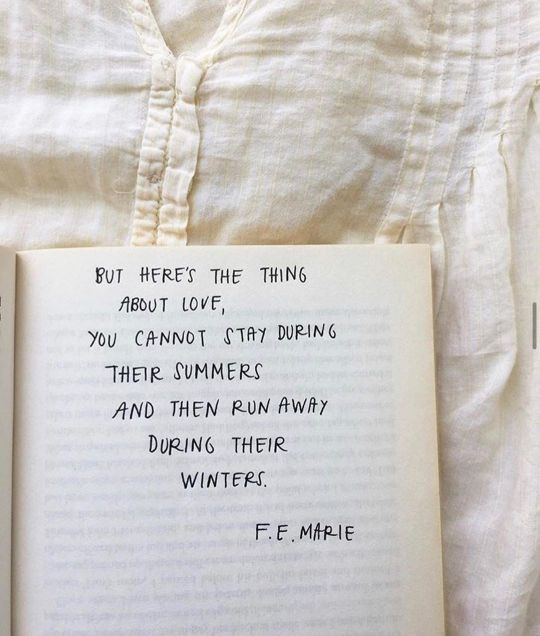 BUT HERE'S THE THING
ABOUT LOVE,
YOU CANNOT STAY DURING
THEIR SUMMERS
AND THEN RUN AWAY
DURING THEIR
WINTERS.
F.E. MARIE